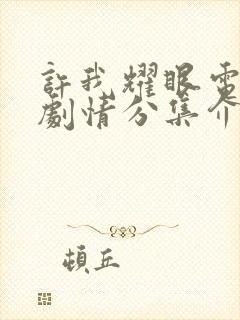 許我耀眼電
劇情分集介
頓丘